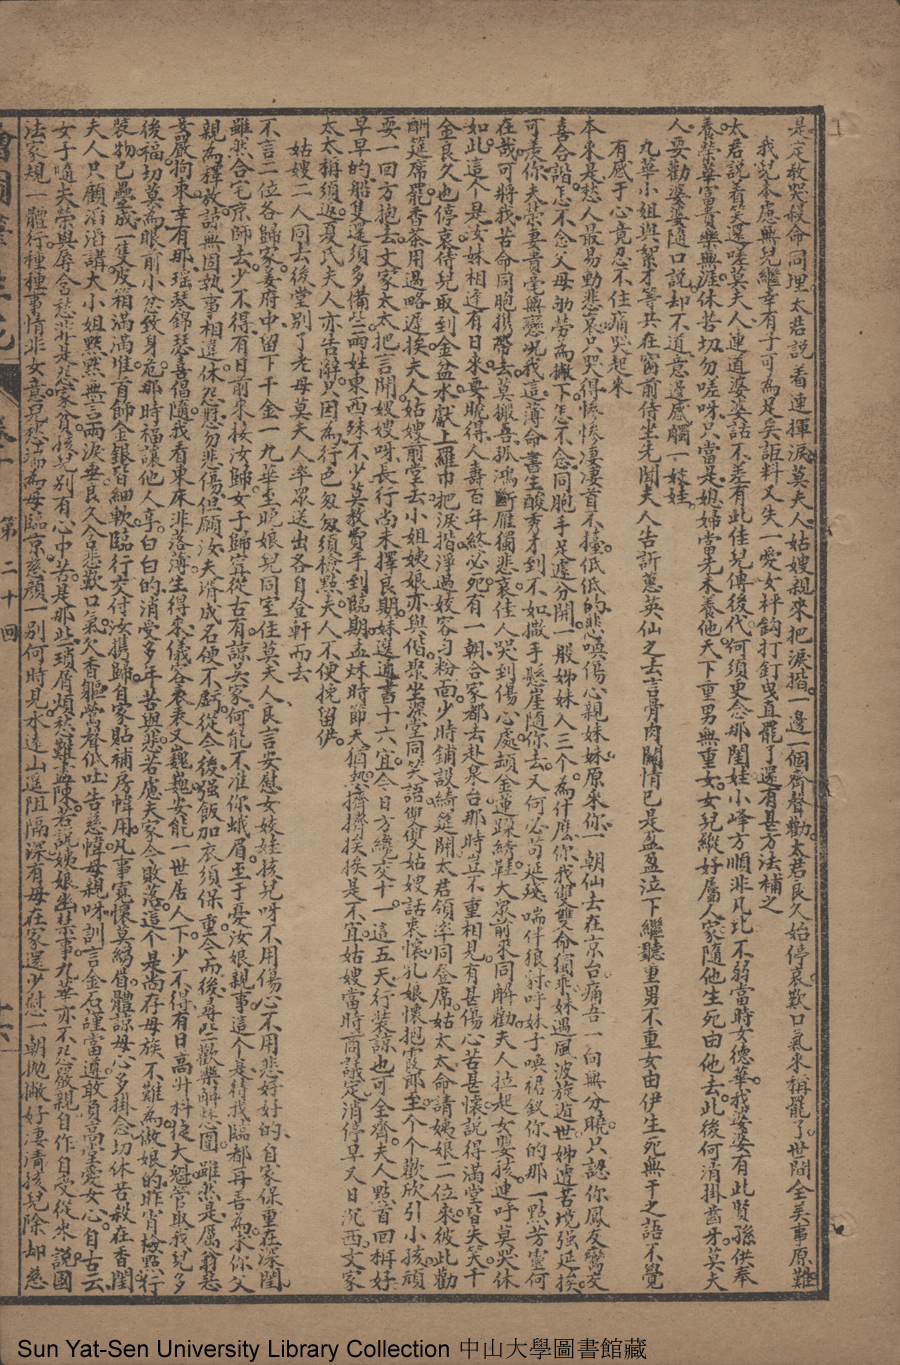 是定教哭殺命同埋太君說着連揮淚莫夫人姑嫂親來把淚揩一邊一個齊聲勸太君良久始停哀歎口氣來稱罷了世間全美事原難
我兒本慮無兒繼幸有子可為足矣詎料又失一愛女枰鈎打釘曳直罷了還有甚方法補之
太君說着天還哇莫夫人連道婆婆話不差有此佳兒傳後代何須更念那閨娃小峰方順非凡比不弱當時女德華我婆婆有此賢孫供奉
養榮華富貴樂無涯休苦切勿嗟呀只當是媳婦當年未養他天下重男無重女女兒縱好屬人家隨他生死由他去此後何消掛齒牙莫夫
人要勸婆婆隨口說却不道意邊感觸一嬌娃
九華小姐與絮才等共在窗前侍坐先聞夫人告訴蕙英仙之去言骨肉關情已是盈盈泣下繼聽重男不重女由伊生死無干之語不覺
有感于心竟忍不住痛哭起來
本來是愁人最易動悲哀只哭得慘慘凄凄首不擡低低的悲喚傷心親妹妹原來你一朝仙去在京台痛吾一向無分曉只認你鳳友鸞交
喜合諧怎不念父母劬勞為撇下怎不念同胞手足遽分開一般姊妹人三個為什麽你我雙雙命獨乖妹遇風波旋逝世姊遭苦境強延挨
可羨你夫榮妻貴堂無戀况我這薄命書生酸秀才到不如撒手懸崖隨你去又何必苟延殘喘伴狼豺呼妹子喚裙釵你的那一點芳靈何
在哉可將我苦命同胞携帶去莫撇吾孤鴻斷雁獨悲哀佳人哭到傷心處頓金蓮踩綉鞋大衆前來同解勸夫人拉起女嬰孩連呼莫哭休
如此這個是父女妹相逢有日來要曉得人壽百年終必死有一朝合家都去赴泉台那時豈不重相見有甚傷心苦甚懷說得滿堂皆失笑千
金良久也停哀侍兒取到金盆水獻上羅巾把淚揩淨過嬌容勻粉面少時鋪設綺筵開太君領率同登席姑太太命請姨娘二位來彼此勸
酬筵席罷香茶用過略遲挨夫人姑嫂前堂去小姐姨娘亦與偕聚坐衆堂同笑語仰雙姑嫂話衷懷乳娘懷抱霞郎至個個歡欣引小孩頑
耍一回方抱去文家太太把言開嫂嫂呀長行尚未擇良期妹送通書十六宜今日方纔交十一這五天行裝諒也可全齊夫人點首回稱好
早早的船隻還須多備些兩姓東西殊不少莫教費手到臨期孟秋時節天猶熱擠擠挨挨是不宜姑嫂當時商議定消停早又日沉西文家
太太稱須返夏氏夫人亦告辭只因為行色匆匆須檢點夫人不便挽留伊
姑嫂二人同去後堂別了老母莫夫人率衆送出各自登軒而去
不言二位各歸家姜府中留下千金一九華至晚娘兒同室住莫夫人良言安慰女嬌娃孩兒呀不用傷心不用悲好好的自家保重在深閨
雖然合宅京師去少不得有日前來接汝歸女子歸寧從古有諒吳家何能不准你蛾眉至于憂汝娘親事這個是待我臨都再善為求你父
親為釋放諒無固執事相違休怨慰勿悲傷但願汝夫壻成名便不虧從今後強飯加衣須保重今而後尋些歡樂解愁圍雖然是屬翁悲
妾嚴拘束幸有那瑶琴錦瑟喜倡隨我看東床非落薄生得來儀容表表又巍巍安能一世居人下少不得有日高升抖挺大魁管取我兒多
後福切莫為眼前小忿致身危那時福讓他人享白白的消受多年苦與悲若慮夫家今敗落這個是尚存母族不難為做娘的昨宵檢點行
裝物已疊成一隻皮箱滿滿堆首飾金銀皆細軟臨行交付汝携歸自家貼補房幃用凡事寬懷莫縐眉體諒母心多掛念切休苦殺在香閨
夫人只顧滔滔講大小姐默默無言兩淚垂良久含悲歎口氣欠香軀鶯聲低吐告慈幃母親呀訓言金石謹當遵敢負高堂愛女心自古云
女子隨夫榮與辱奴愁非是怨家貧孩兒別有心中苦是那些瑣屑煩愁難盡陳若說姨娘坐禁事九華亦不怨嚴親自作自受從來說國
法家規一體行種種事情非女意兒愁端為母臨京慈顏一別何時見水遠山遥阻隔深有母在家還少慰一朝拋撇好凄清孩兒除却慈
第二十回
Sun Yat-Sen University Library Collection 中山大學圖書館藏